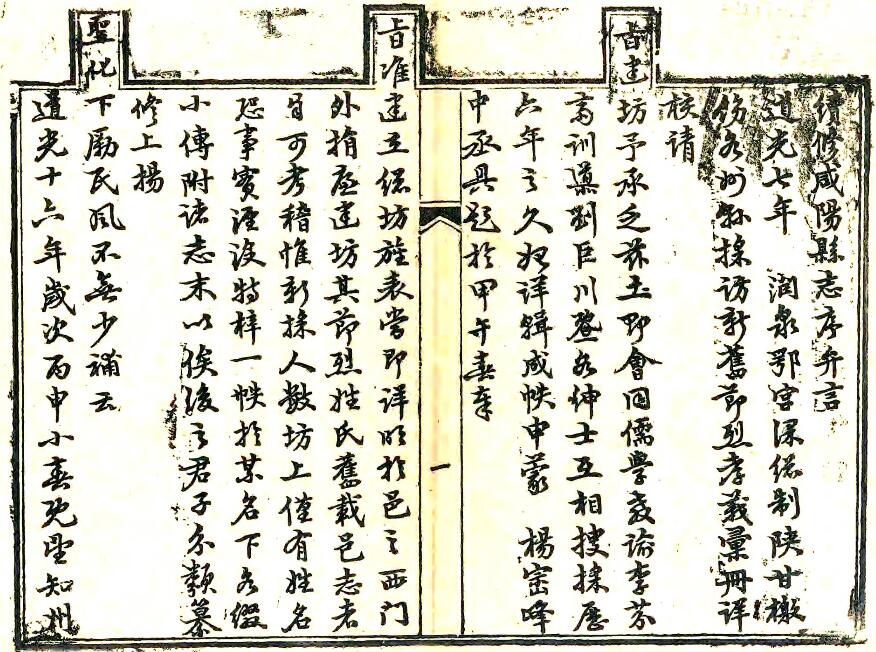 續修咸陽縣志序弁言
道光七年 潤泉鄂宮深總制陝甘檄
飭各州縣採訪新舊節烈孝義彙冊詳
核請
旨建
坊予承乏茲土即會同儒學教諭李芬
高訓導劉巨川暨各紳士互相搜採歷
六年之久始詳輯成帙申蒙 楊宻峰
中丞具題於甲午春奉
旨准建立總坊旌表當即詳明於邑之西門
外捐廉建坊其節烈姓氏舊載邑志者
自可考稽惟新採人數坊上僅有姓名
恐事實湮沒特梓一帙於某名下各綴
小傳附諸志末以俟後之君子分類纂
修上揚
聖化
下勵民風不無少補云
道光十六年歲次丙申小春既望知州
一